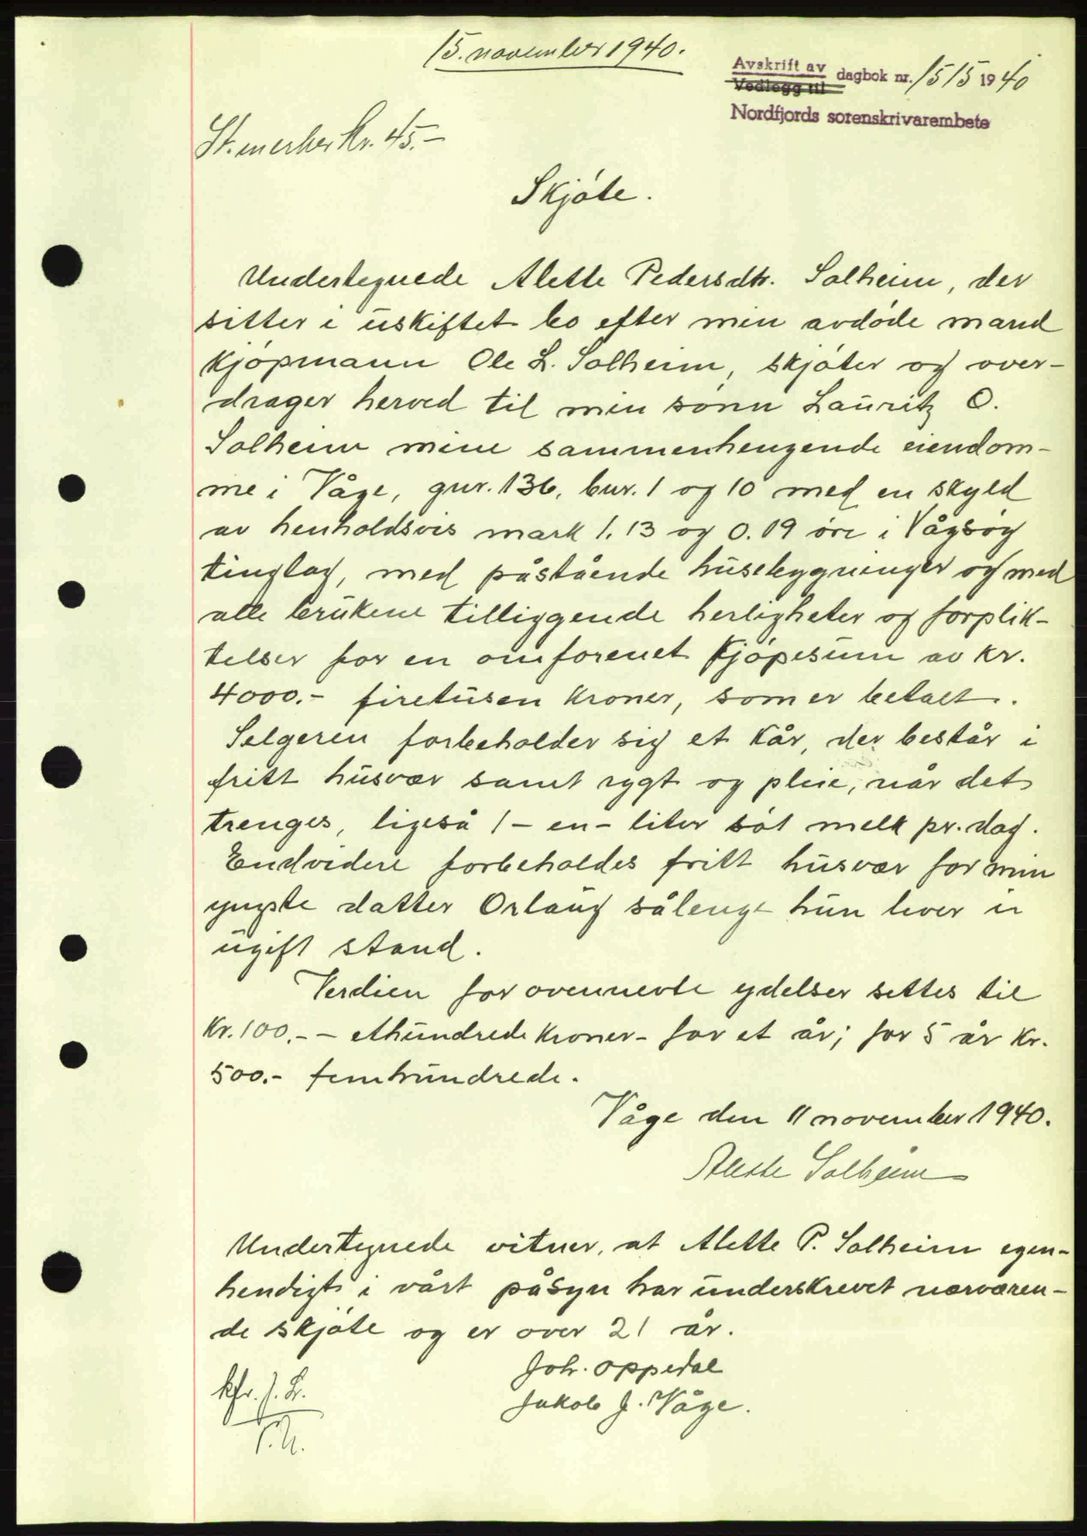 15. november 1940.
Avskrift av
Vedlegg til dagbok nr. 1515 1940
Nordfjords sorenskrivarembete
St.merker kr. 45.-
Skjøte.
Undertegnede Alette Pedersdtr. Solheim, der
sitter i uskiftet bo efter min avdøde mand
kjøpmann Ole L. Solheim, skjøter og over-
drager herved til min sønn Lauritz O.
Solheim mine sammenhengende eiendom-
me i Våge, gnr. 136, bnr. 1 og 10 med en skyld
av henholdsvis mark 1.13 og 0.19 øre i Vågsøy
tinglag, med påstående husebygninger og med
alle brukene tilliggende herligheter og forplik-
telser for en omforenet kjøpesum av kr.
4000.- firetusen kroner, som er betalt.
Selgeren forbeholder sig et kår, der består i
fritt husvær samt rygt og pleie, når det
trenges, ligeså 1 - en - liter søt melk pr. dag.
Endvidere forbeholdes fritt husvær for min
yngste datter Orlaug sålenge hun lever i
ugift stand.
Verdien for ovennevte ydelser settes til
Kr. 100.- - ethundrede kroner - for et år; for 5 år kr.
500.- femhundrede.
Våge den 11 november 1940.
Alette Solheim
Undertegnede vitner, at Alette P. Solheim egen-
hendigt i vårt påsyn har underskrevet nærværen-
de skjøte og er over 21 år.
Joh. Oppedal
Jakob J. Våge.